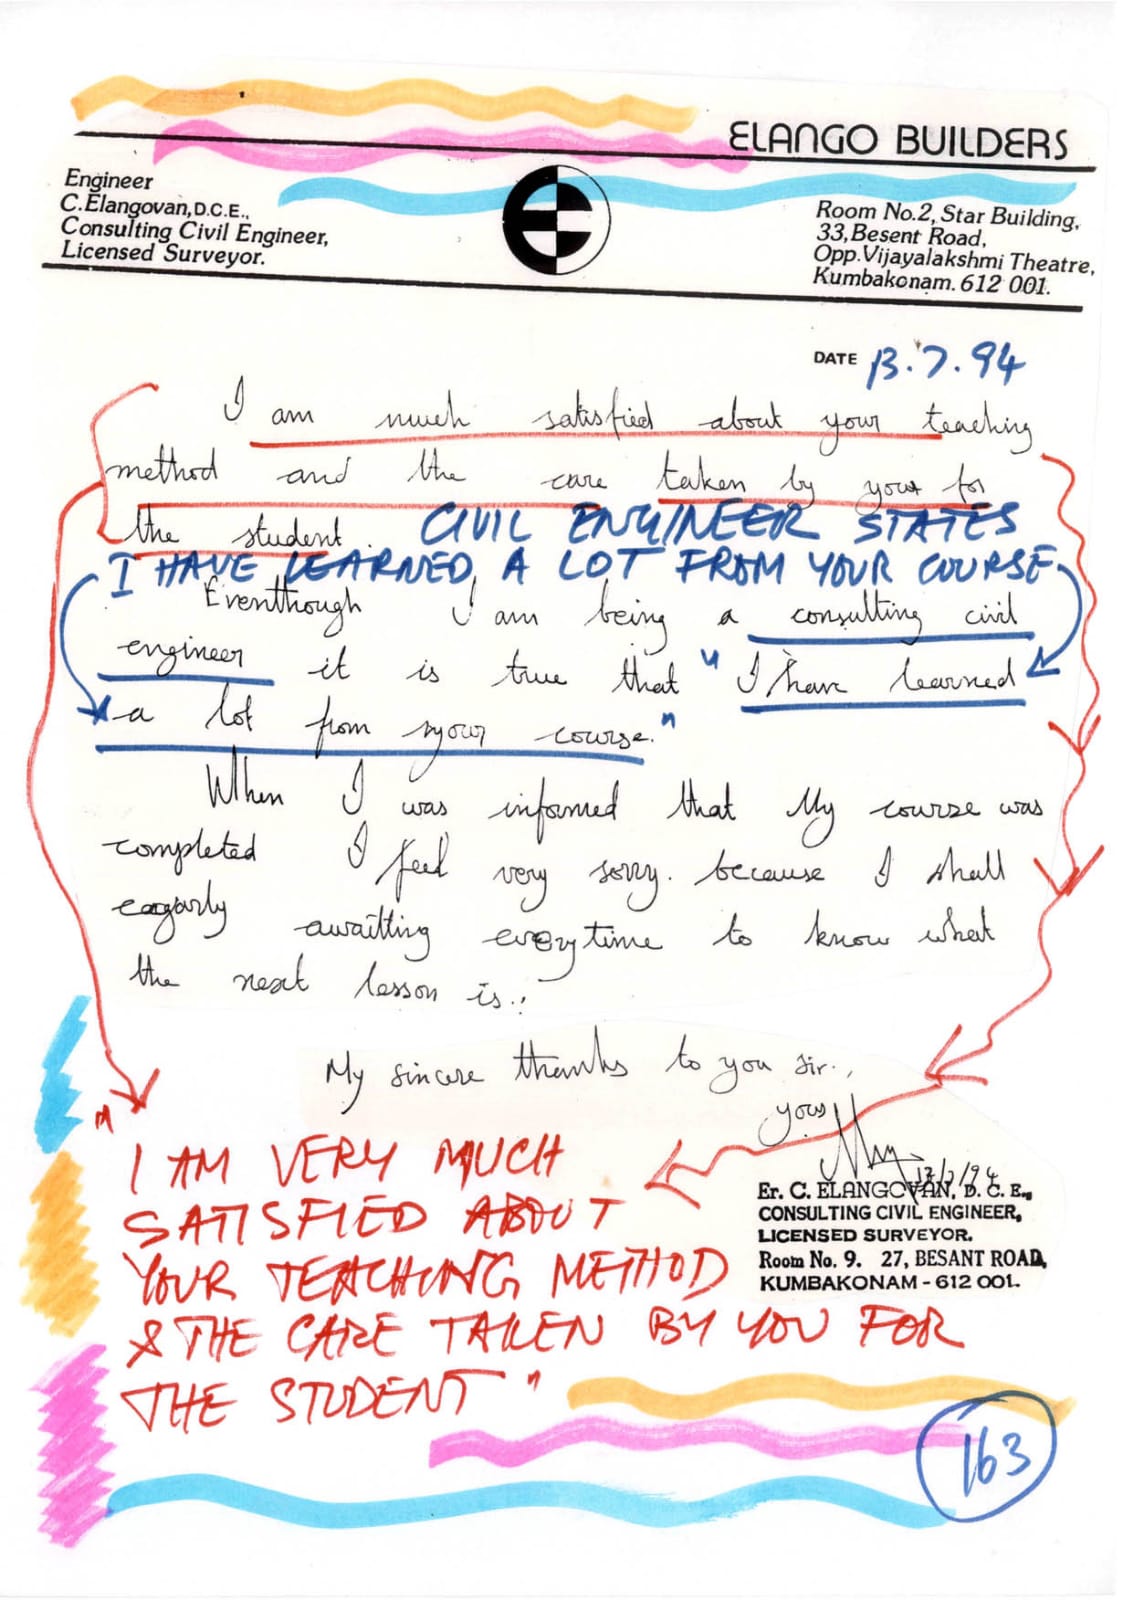 ELANGO BUILDERS
Engineer
C.Elangovan,D.C.E.,
Consulting Civil Engineer,
Licensed Surveyor.
Room No.2, Star Building,
33,Besent Road,
Opp.Vijayalakshmi Theatre,
Kumbakonam. 612 001.
DATE 13.7.94
I am much satisfied about your teaching
method and the care taken by your for
the student. CIVIL ENGINEER STATES
I HAVE LEARNED A LOT FROM YOUR COURSE
Eventhough I am being a consulting civil
engineer it is true that "I have learned
a lot from your course."
When I was informed that My course was
completed I feel very sorry. because I shall
eagarly awaitting everytime to know what
the next lesson is.!
My sincere thanks to you sir.,
yours
13/7/94
Er. C. ELANGOVAN, D. C. E.,
CONSULTING CIVIL ENGINEER,
LICENSED SURVEYOR.
Room No. 9. 27, BESANT ROAD,
KUMBAKONAM - 612 001.
"I AM VERY MUCH
SATISFIED ABOUT
YOUR TEACHING METHOD
& THE CARE TAKEN BY YOU FOR
THE STUDENT"
163